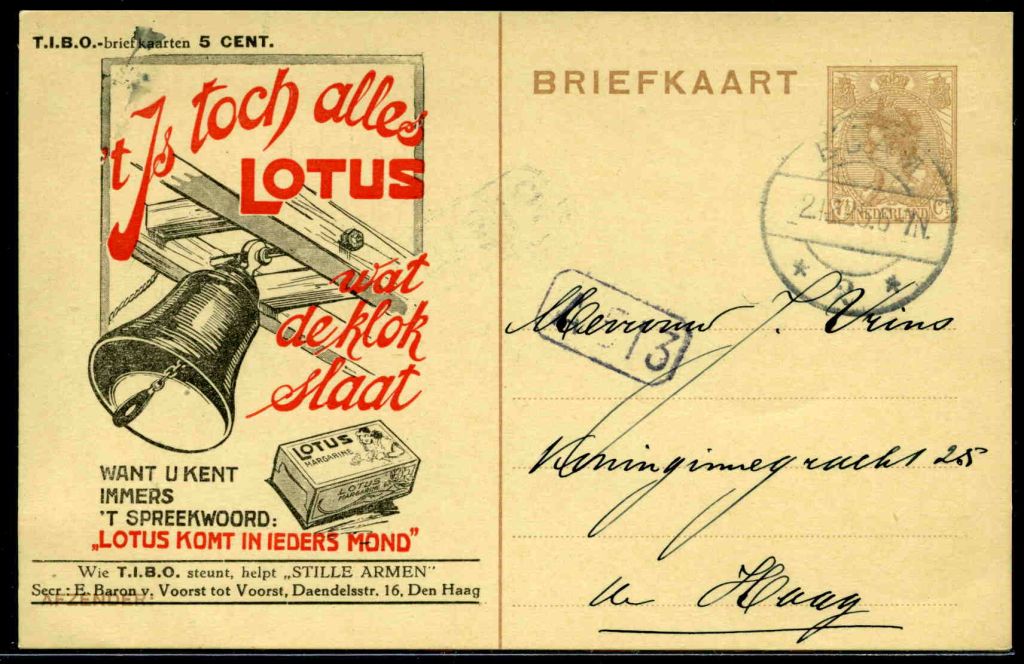 T.I.B.O.-briefkaarten 5 CENT.
't Is toch alles
LOTUS
wat
de klok
slaat
LOTUS
MARGARINE
LOTUS
MARGARINE
WANT U KENT
IMMERS
'T SPREEKWOORD:
„LOTUS KOMT IN IEDERS MOND"
Wie T.I.B.O. steunt, helpt „STILLE ARMEN"
Secr.: E. Baron v. Voorst tot Voorst, Daendelsstr. 16, Den Haag
AFZENDER:
BRIEFKAART
NEDERLAND
Mevrouw J. Vrins
Koninginnegracht 25
de Haag